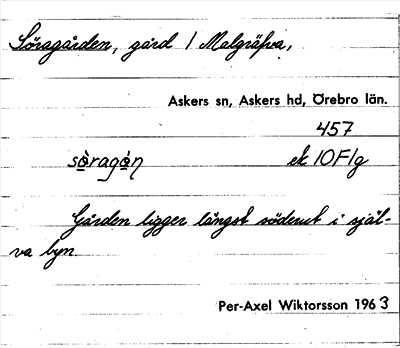 Söragården, gård i Malgräfva,
Askers sn, Askers hd, Örebro län.
457
sö̀ragá̊ṇ ek 10F1g
Gården ligger längst söderut i själ-
va byn
Per-Axel Wiktorsson 1963